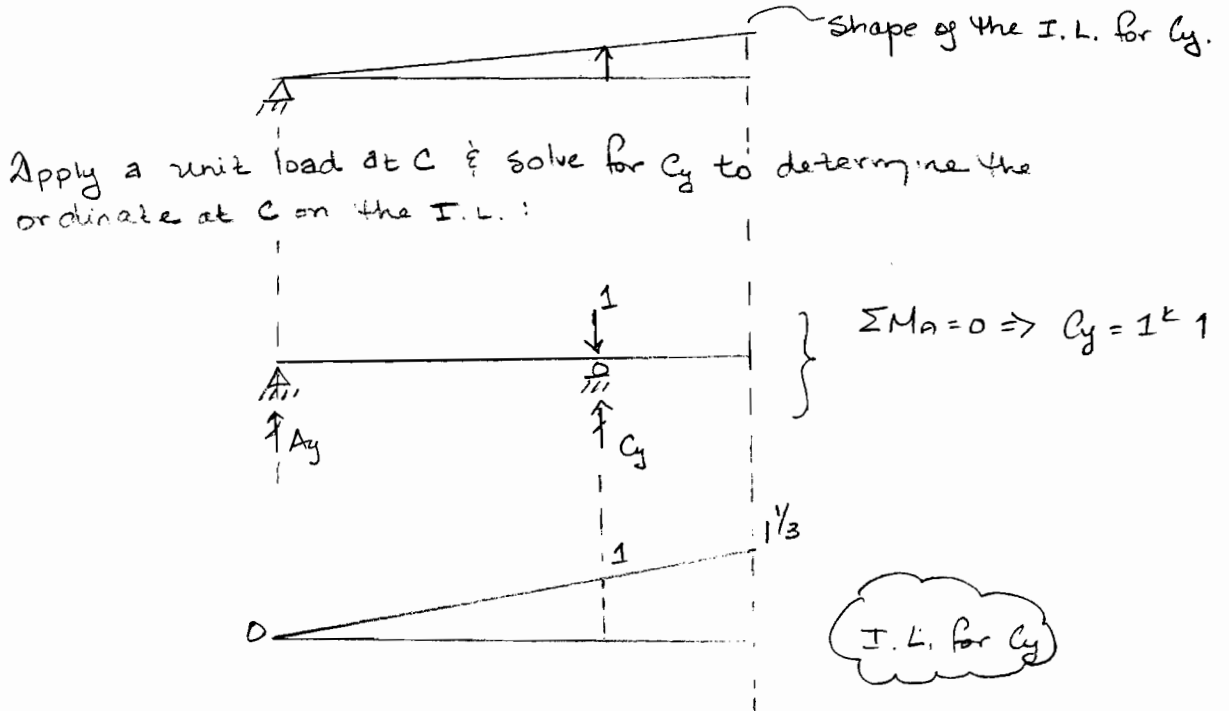 Shape of the I.L. for Cy.
Apply a unit load at C & solve for Cy to determine the
ordinate at C on the I.L.:
1
ΣMA = 0 => Cy = 1k ↑
Ay
Cy
1 1/3
1
0
I.L. for Cy